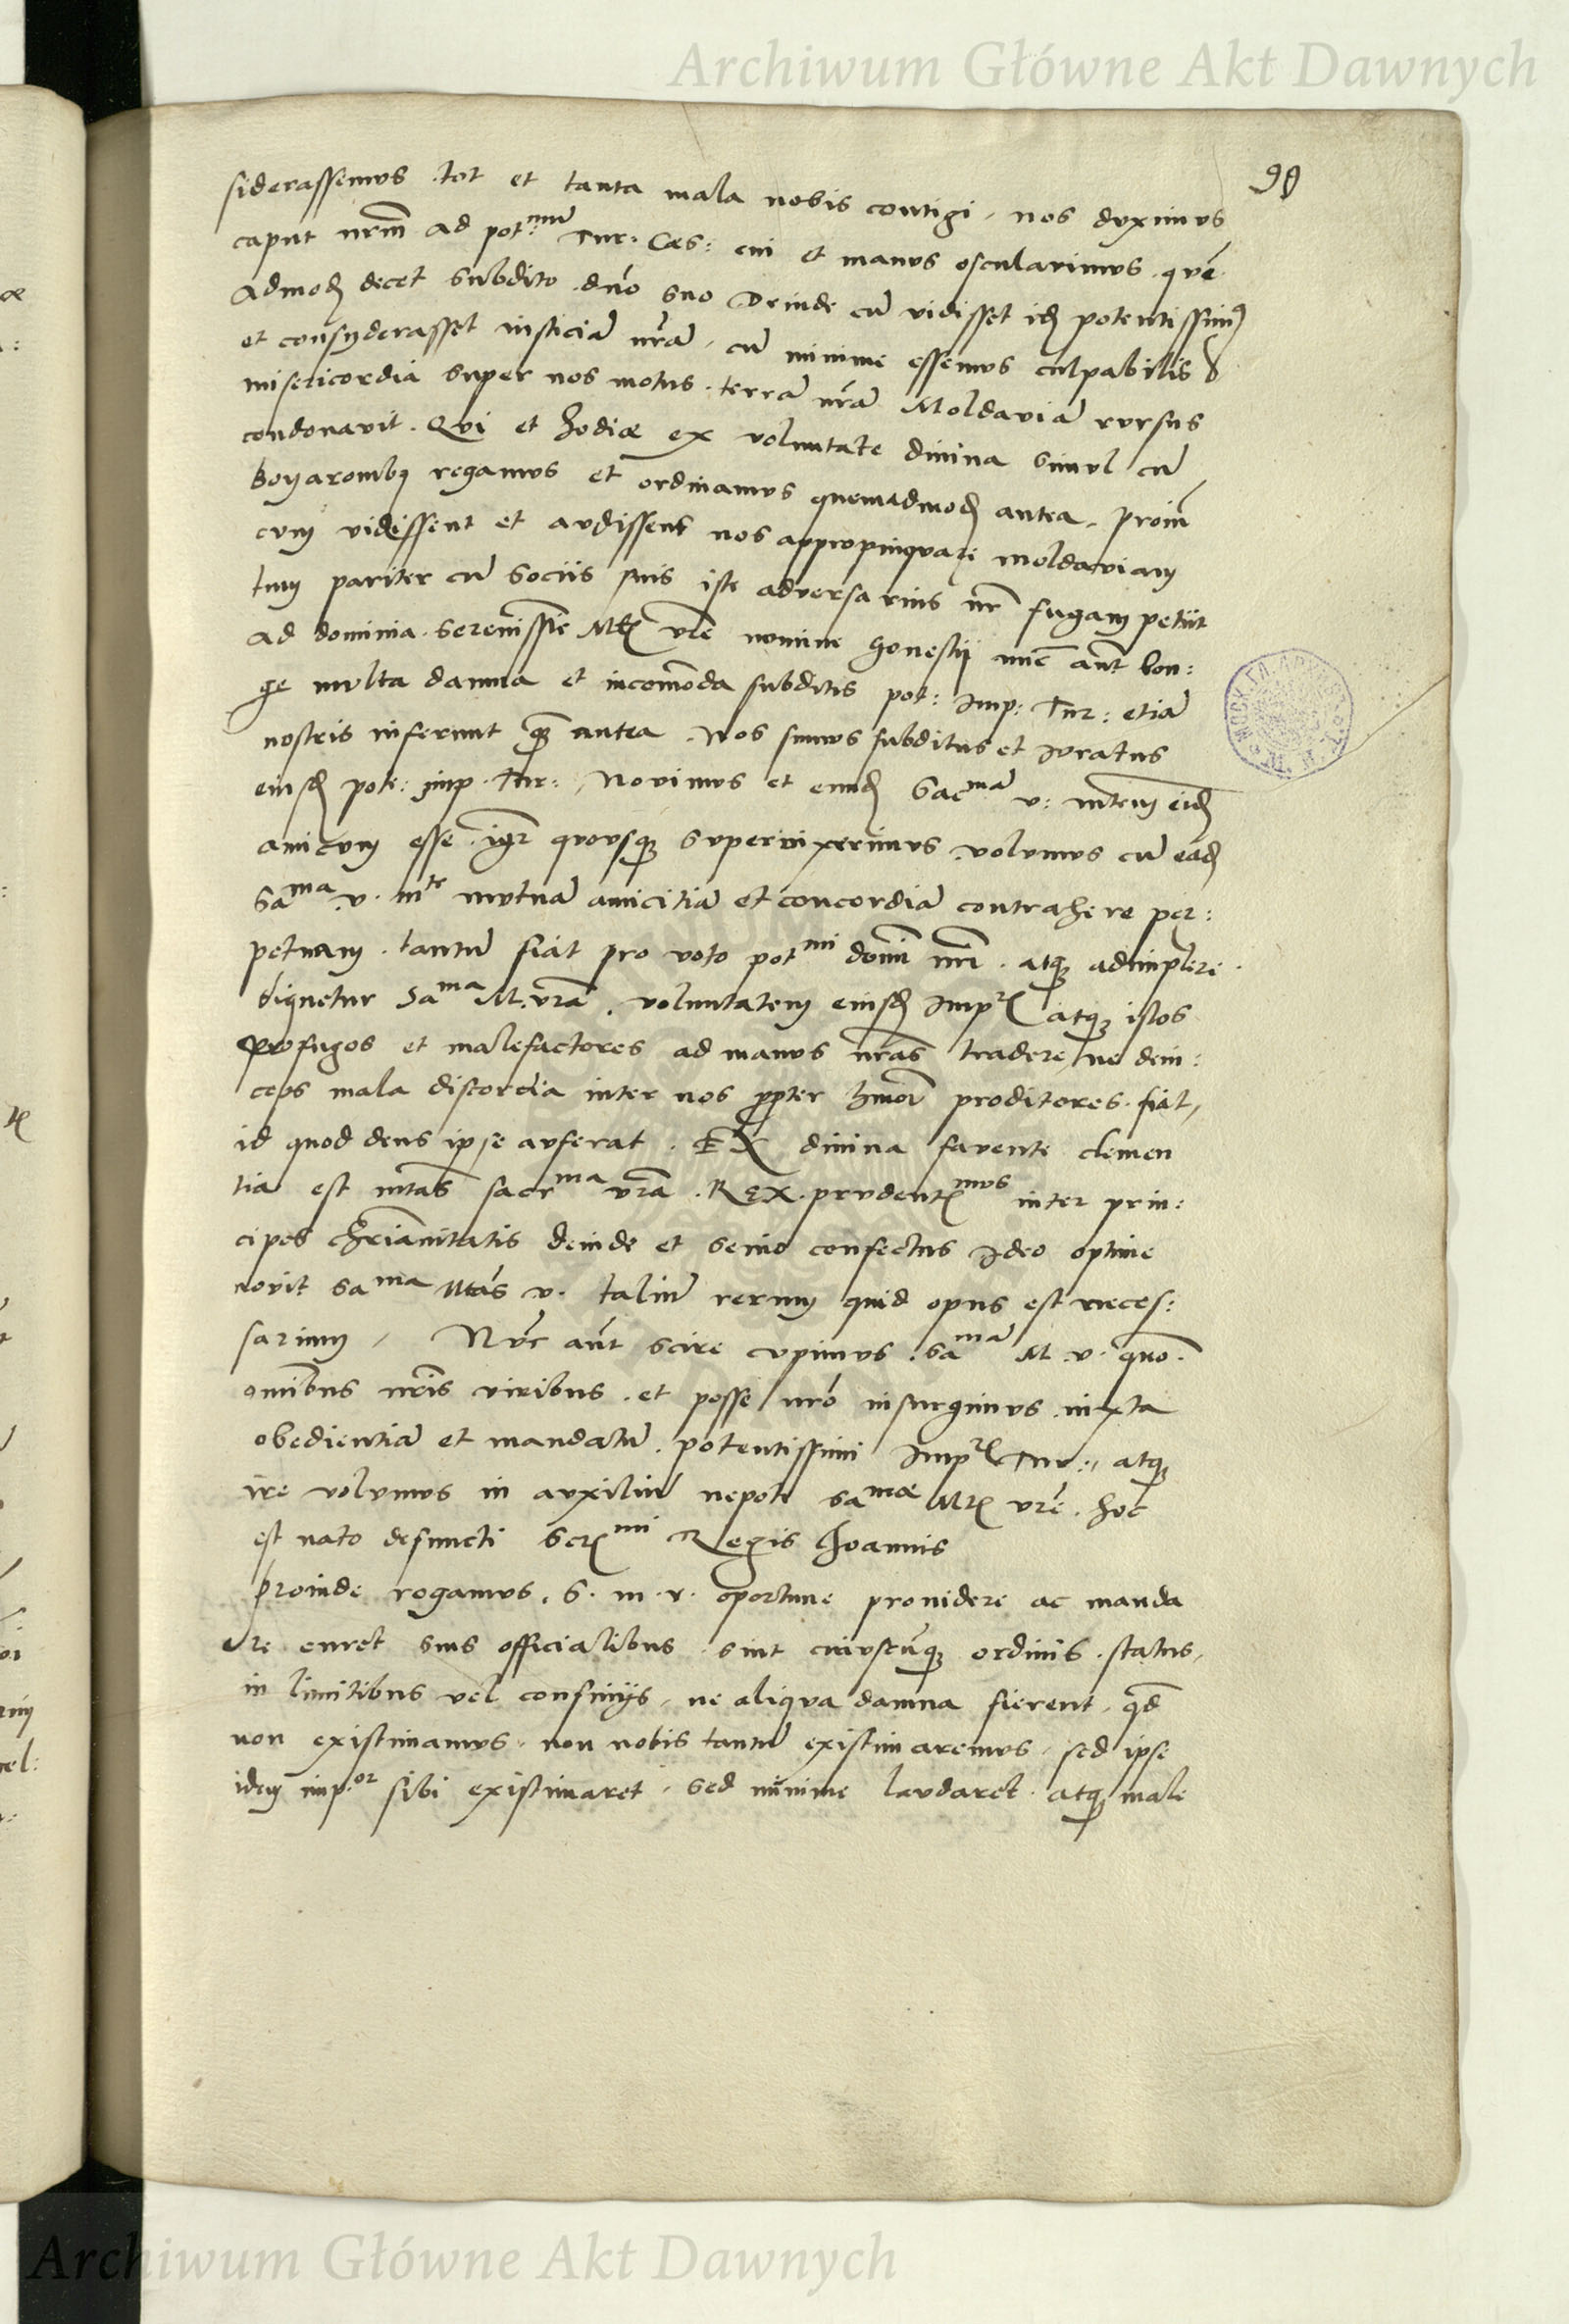 Archiwum Główne Akt Dawnych
90
siderassemus tot et tanta mala nobis contigi, nos duximus
caput nrm̃ ad pot:mũ Tur: Cæs: cui et manus oscularimus quẽ
admoď decet subdito dnõ suo Deinde cũ vidisset iď potentissimꝰ
et consyderasset iusticiã nrã, cũ minime essemus culpabilis
misericordia super nos motus terrã nrã Moldaviã rursus
condonavit. Qui et hodiæ ex voluntate divina simul cũ
boyaronibꝫ regamus et ordinamus quemadmoď antea. Proin
cum vidissent et audissent nos appropinquare moldaviam
tum pariter cũ sociis suis iste adversarius nr̃ fugam petiit
ad dominia serenissie Mtꝭ vrẽ nomine honestij nũc aũt lon:
ge multa damna et incomoda subditis pot: Imp: Tur: etiã
nostris inferunt qꝫ antea. Nos sumus subditus et iuratus
eiusď pote: imp. Tur: Novimus et eunď Sacmã v: mtem eiď
amicum esse igr̃ quousqꝫ supervixerimus volumus cũ eãď
Sãma v. mte mutuã amicitiã et concordiã contrahere per:
petuam. tantũ fiat pro voto potmi domĩ nrĩ. atqꝫ adimplere
dignetur Sãma M. vrã. voluntatem eiusď Impris atqꝫ istos
profugos et malefactores ad manus nrãs tradere, ne dein:
ceps mala discordia inter nos ꝓpter hmõi proditores fiat,
id quod deus ipse auferat. Ex divina favente clemen
tia est mtas sacrma vrã. Rex prudentꝭmus inter prin:
cipes chrianitatis deinde et senio confectus ideo optime
novit Sãma Mtas v. taliũ rerum quid opus est neces:
sarium, Nũc aũt scire cupimus Sãmã M. v. quo.
omibus nrĩs viribus et posse nrõ insurgimus iuxta
obedientiã et mandatũ potentissimi Impris Tur:, atqꝫ
ire volumus in auxiliũ nepote Sãmæ Mtꝭ vrẽ. hoc
est nato defuncti serꝭmi Regis Joannis
Proinde rogamus, S. m. v. oportune providere ac manda
re curet suis officialibus sint cuiuscũqꝫ ordinis status,
in limitibus vel confinijs, ne aliqua damna fierent, qđ
non existimamus, non nobis tantũ existimaremus, sed ipse
idem imp.or sibi existimaret, sed minime laudaret atqꝫ male
Archiwum Główne Akt Dawnych